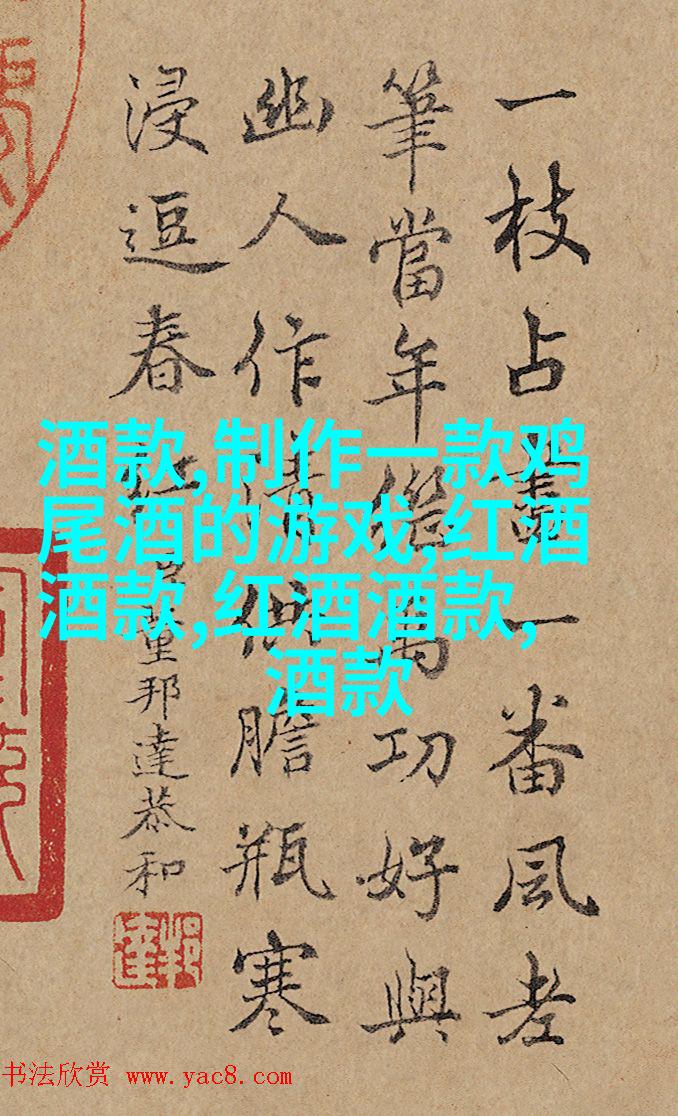 一枝占盡一番風老
筆當年功好與
幽人作清供膽瓶寒
浸逗春紅臣董邦達恭和
邦達
酒款,制作一款鸡
尾酒的游戏,红酒
酒款,红酒酒款,
酒款
书法欣赏 www.yac8.com